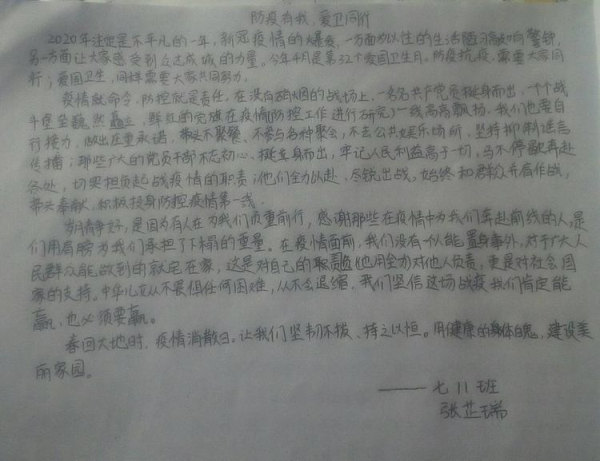 防疫有我，爱卫同行
2020年注定是不平凡的一年，新冠疫情的爆发，一方面为以往的生活陋习敲响警钟，
另一方面让大家感受到众志成城的力量。今年4月是第32个爱国卫生月，防疫抗疫，需要大家同
行；爱国卫生，同样需要大家共同努力。
疫情就是命令，防控就是责任，在没有硝烟的战场上，一名名共产党员挺身而出，一个个战
斗堡垒巍然矗立，鲜红的党旗在疫情防控工作进行一线高高飘扬。我们也要自
行接力，做出庄重承诺，带头不聚餐、不参与各种聚会，不去公共娱乐场所，坚持抑制谣言
传播；那些广大的党员干部不忘初心、挺身而出，牢记人民利益高于一切，马不停歇再赴
各处，切实担负起战疫情的职责；他们全力以赴、尽锐出战，始终和群众并肩作战，
带头奉献，积极投身防控疫情第一线。
岁月静好，是因为有人在为我们负重前行，感谢那些在疫情中为我们奔赴前线的人，是
们用肩膀为我们承担了下塌的重量。在疫情面前，我们没有一个人能置身事外，对于广大人
民群众能做到的就宅在家，这是对自己的职责也用全力对他人负责，更是对社会国
家的支持。中华儿女从不畏惧任何困难，从不会退缩，我们坚信这场战疫我们肯定能
赢，也必须要赢。
春回大地时，疫情消散日。让我们坚韧不拔、持之以恒。用健康的身体魄，建设美
丽家园。
——七11班
张芷瑞